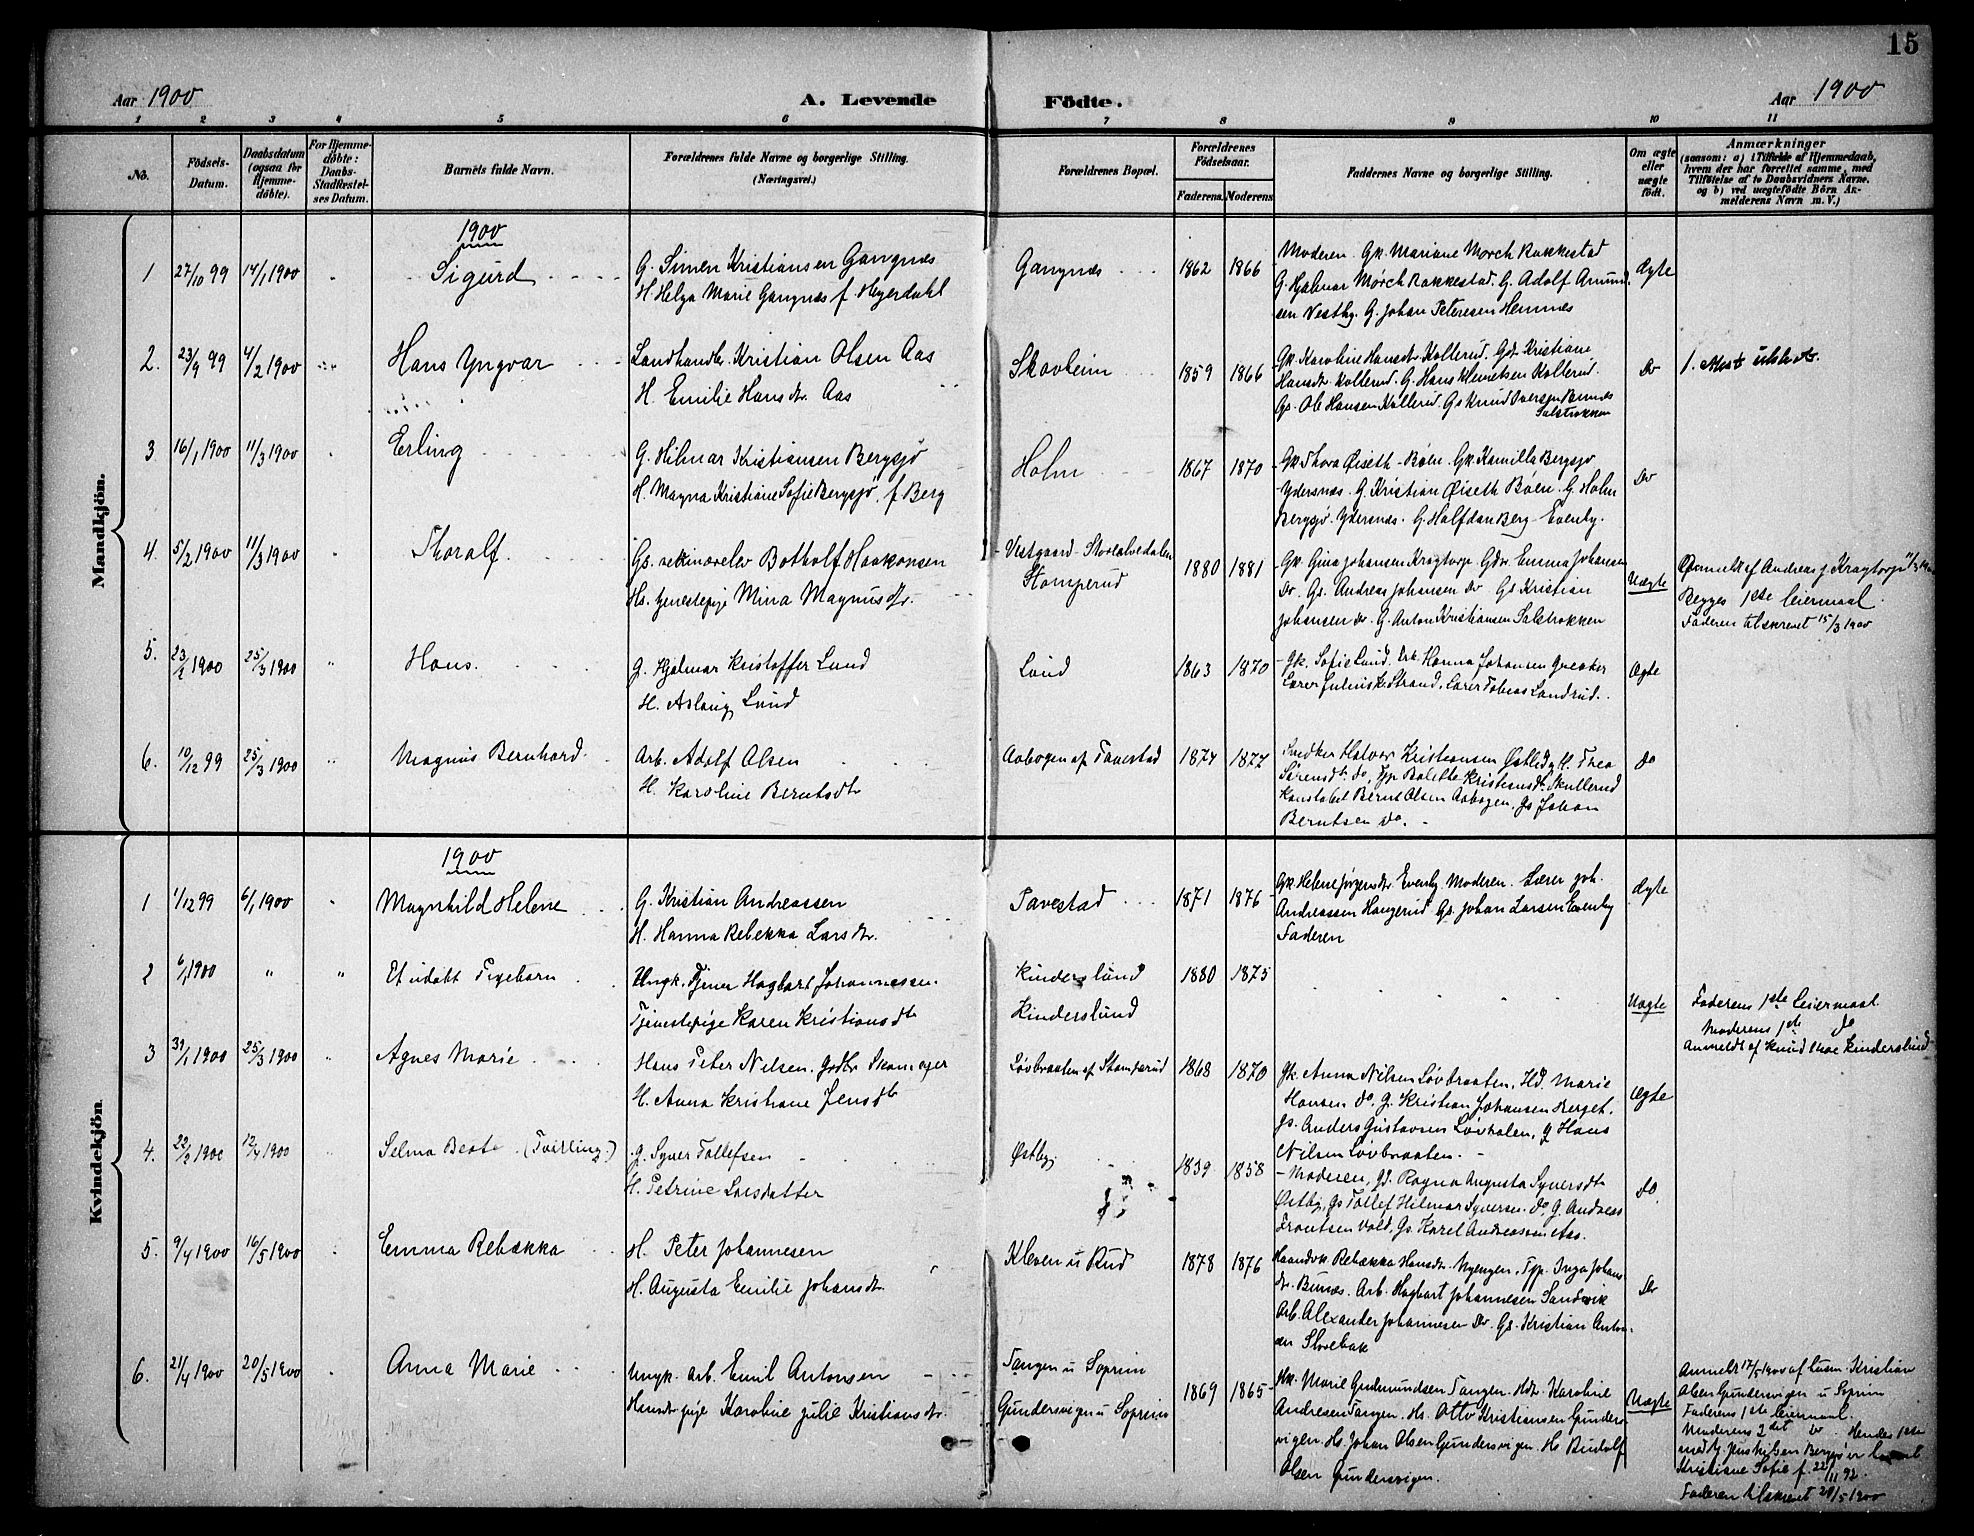 15
Aar 1900
A. Levende Födte.
Aar 1900
1 2 3 4 5 6 7 8 9 10 11
No.
Födsels-Datum.
Daabsdatum (ogsaa for Hjemme-døbte).
For Hjemme-døbte: Daabs-Stadfæstel-ses Datum.
Barnets fulde Navn.
Forældrenes fulde Navne og borgerlige Stilling.
(Næringsvei.)
Forældrenes Bopæl.
Forældrenes Födselsaar.
Faderens. Moderens.
Faddernes Navne og borgerlige Stilling.
Om ægte eller uægte født.
Anmærkninger
(saasom: a) i Tilfælde af Hjemmedaab, hvem der har forrettet samme, med Tilføielse af to Daabsvidners Navne, og b) ved uægtefödte Börn An-melderens Navn m. V.)
Mandkjön.
1900
1 27/10 99 14/1 1900 Sigurd
G. Simen Kristiansen Gangnæs
H. Helga Marie Gangnæs f. Heyerdahl
Gangnæs 1862 1866
Moderen. Gk. Mariane Mørch Rakkestad
G. Hjalmar Mørch Rakkestad. G. Adolf Amund-
sen Vestby. G. Johan Petersen Hemnes
Ægte
2. 23/9 99 4/2 1900 Hans Yngvar
Landhandl. Kristian Olsen Aas
H. Emilie Hansdtr. Aas
Skovheim 1859 1866
Gk. Karoline Hansdtr Kollerud. Gdr Kristiane
Hansdtr. Kollerud. G. Hans Henriksen Kollerud.
Gs. Ole Hansen Kollerud. Gs Knud Iversen
Salstrokken
Do
1. Attest utstedt.
3 16/1 1900 11/3 1900 Erling
G. Hilmar Kristiansen Bergsjø
H. Magna Kristiane Sofie Bergsjø, f. Berg
Holm 1867 1870
Gk. Thora Øiseth - Bøen. Gk. Kamilla Bergsjø
Ydersnæs. G. Kristian Øiseth Bøen. G. Holm
Bergsjø. Ydersnæs. G. Halfdan Berg - Evenby.
Do
4. 5/2 1900 11/3 1900 Thoralf.
Gs. Botholf Haakonsen
Hs. tjenestepige Mina Magnusdtr.
Vestgaard - Storalvedalen
Stomperud
1880 1881
Gk Gina Johansen Kragtorp Gdr. Emma Johansen
Do. Gs. Andreas Johansen Do Gs Kristian
Johansen do. G. Anton Kristiansen Salstrokken
Uægte
Anmeldt af Andreas J. Kragtorp 11/3 1900
Begges 1ste leiermaal.
Faderen tilskrevet 15/3 1900
5. 23/2 1900 25/3 1900 Hans.
G. Hjalmar Kristoffer Lund
H. Aslaug Lund
Lund 1863 1870
Gk. Sofie Lund. Hanna Johansen Greaker
Lærer Julius K. Strand, Lærer Tobias Landrud.
Ægte
6. 10/12 99 25/3 1900 Magnus Bernhard.
Arb. Adolf Olsen
H. Karoline Berntsdtr
Aabogen af Tavestad 1874 1877
Snedker Halvor Kristiansen Østby, H. Thea
Sørensdtr do, Tjp Bolette Kristiansdtr. Skullerud
Konstabel Bernt Olsen Aabogen, Gs Johan
Berntsen do.
do
Kvindekjön
1900
1 1/12 99 6/1 1900 Magnhild Helene
G. Kristian Andreassen
H. Hanna Rebekka Larsdtr.
Tavestad 1871 1876
Gk. Helene Jørgensdtr Evenby Moderen. Lærer Joh.
Andreassen Haugerud Gs. Johan Larsen Evenby
Faderen
Ægte
2 6/1 1900 " " Et udøbt Pigebarn
Ungk. Tjener Hagbart Johannessen.
Tjenestepige Karen Kristiansdtr
Kinderslund
Kinderslund
1880 1875
Uægte
Faderens 1ste leiermaal
Moderens 1ste do
Anmeldt af Knud Kinderslund
3 31/1 1900 25/3 1900 Agnes Marie
Hans Peter Nilsen, Gdbr Skomager
H. Anna Kristiane Jensdtr
Løvbraaten af Stomperud 1868 1870
Gk. Anna Nilsen Løvbraaten, Hd. Marie
Hansen do, G. Kristian Johansen Berget.
Gs. Anders Gustavsen Løvholen, G Hans
Nilsen Løvbraaten.
Ægte
4. 22/2 1900 12/4 1900 Selma Beate (Tvilling)
G. Syver Tollefsen
H. Petrine Larsdatter
Østby 1839 1858
Moderen, Gd. Ragna Augusta Syversdtr
Østby, Gs Tollef Hilmar Syversen do, G. Andreas
Frantsen Vold, Gs. Karel Andreassen Aas.
do.
5. 9/4 1900 16/5 1900 Emma Rebækka
H. Peter Johannesen
H. Augusta Emilie Johansdtr.
Kleven u Rud 1878 1876
Rebækka Hansdtr. Nyengen, Tjp. Inga Johans-
dtr. Bunæs. Arb. Hagbart Johannesen Sandvik
Arb. Alexander Johannesen Do. Gs. Kristian Anton-
sen Skovebak
Do
6. 21/4 1900 20/5 1900 Anna Marie
Ungk. Arb. Emil Antonsen
Hmdr. pige Karoline Julie Kristiansdtr.
Tangen u Soprim
Gundersvigen u Soprim
1869 1865
Hk. Marie Gudmundsen Tangen. Hdr. Karoline
Andresen Tangen. Hs. Otto Kristiansen Gunders-
vigen. Hs. Johan Olsen Gundersvigen. Hs Rudolf
Olsen Gundersvigen.
Uægte
Anmeldt 17/5 1900 af husm. Kristian
Olsen Gundersvigen u Soprim
Faderens 1ste leiermaal.
Moderens 2det do. Hendes 1ste
med G. Jens Nilsen Bergsjø er
Kristiane Sofie f. 22/11 92.
Faderen tilskrevet 21/5 1900